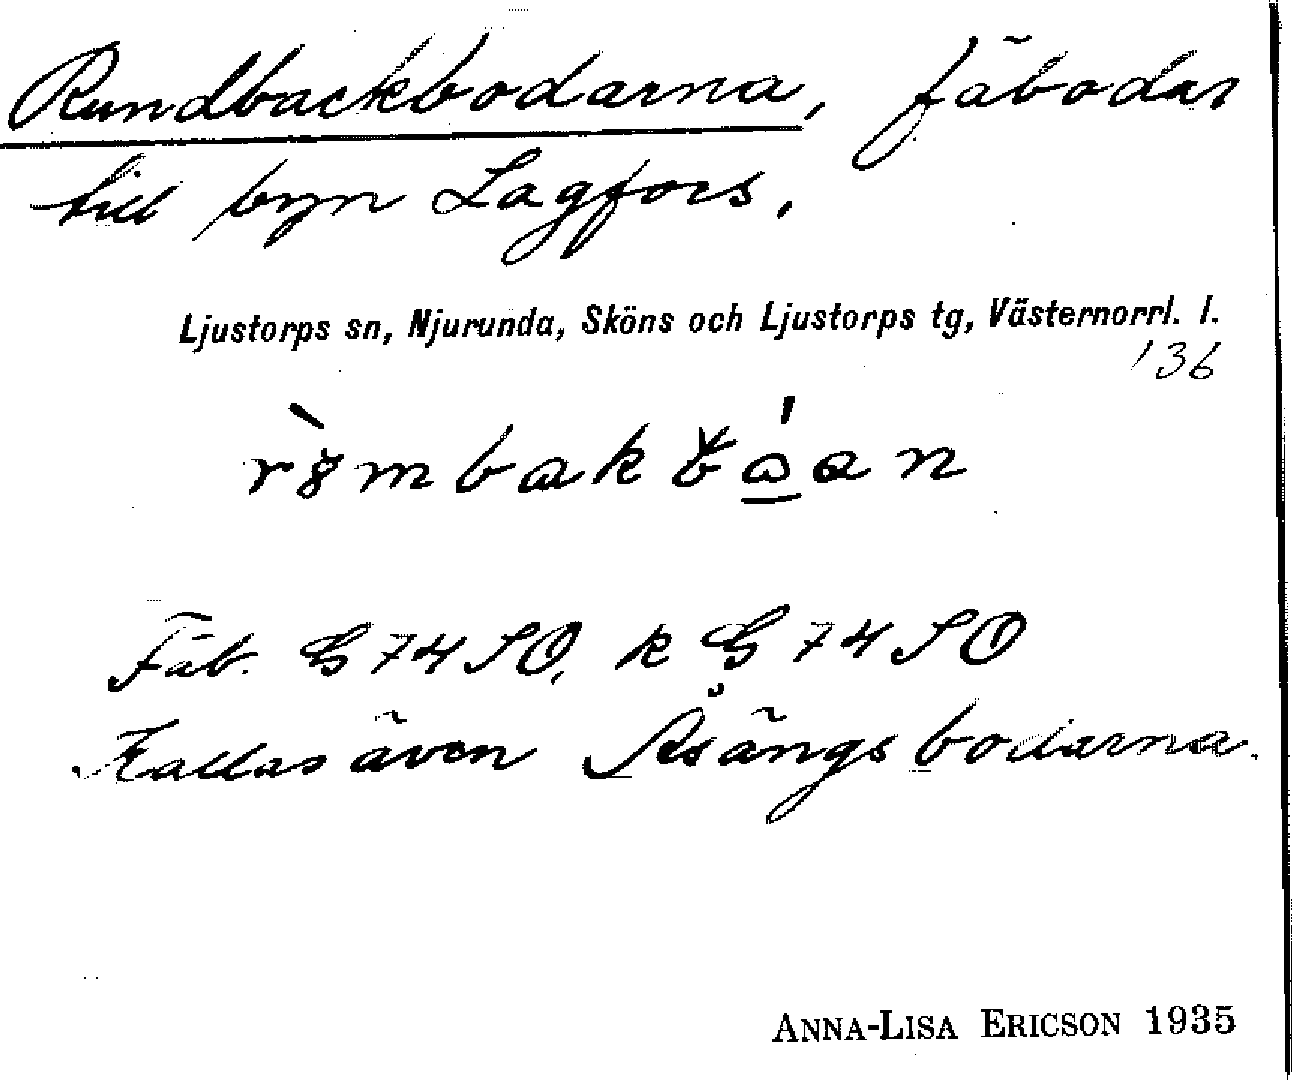 Rundbackbodarna, fäbodar
till byn Lagfors.
Ljustorps sn, Njurunda, Sköns och Ljustorps tg, Västernorrl. l.
136
Fäb. G 74 SO, k G 74 SO
Kallas även Åsängsbodarna.
ANNA-LISA ERICSON 1935